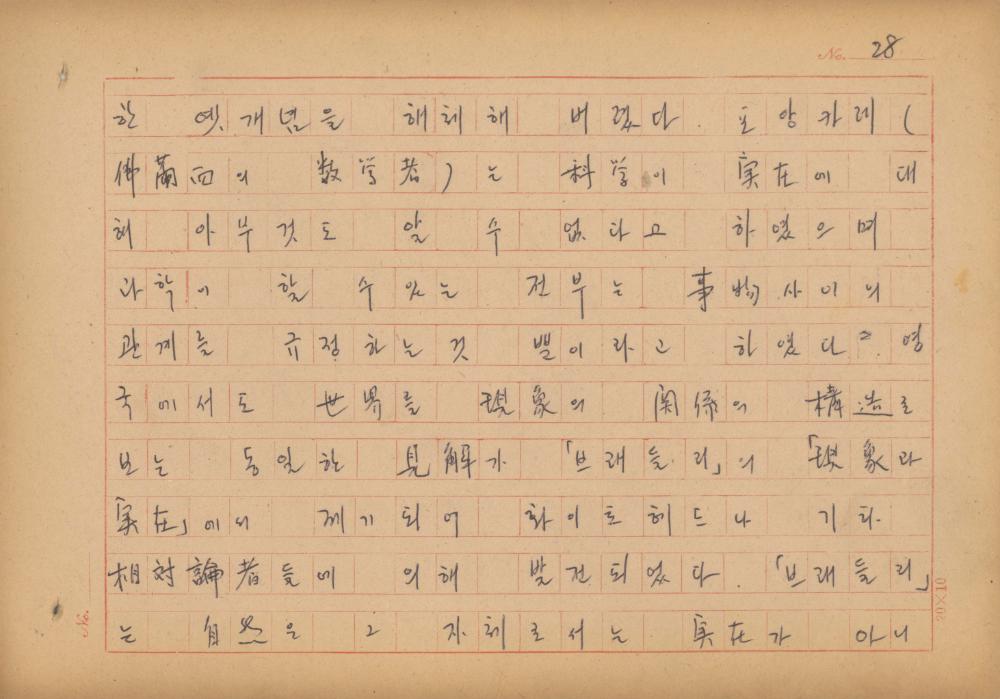 No. 28
한 옛개념을 해체해 버렸다. 포앙카레 (
佛蘭西의 数学者)는 科学이 実在에 대
해 아무것도 알 수 없다고 하였으며
과학이 할 수있는 전부는 事物사이의
관계를 규정하는것 뿐이라고 하였다. 영
국에서도 世界를 現象의 関係의 構造로
보는 동일한 見解가 「브래들리」의 「現象과
実在」에서 제기되어 화이트헤드나 기타
相対論者들에 의해 발전되었다. 「브래들리」
는 自然은 그 자체로서는 実在가 아니
No.
20×10